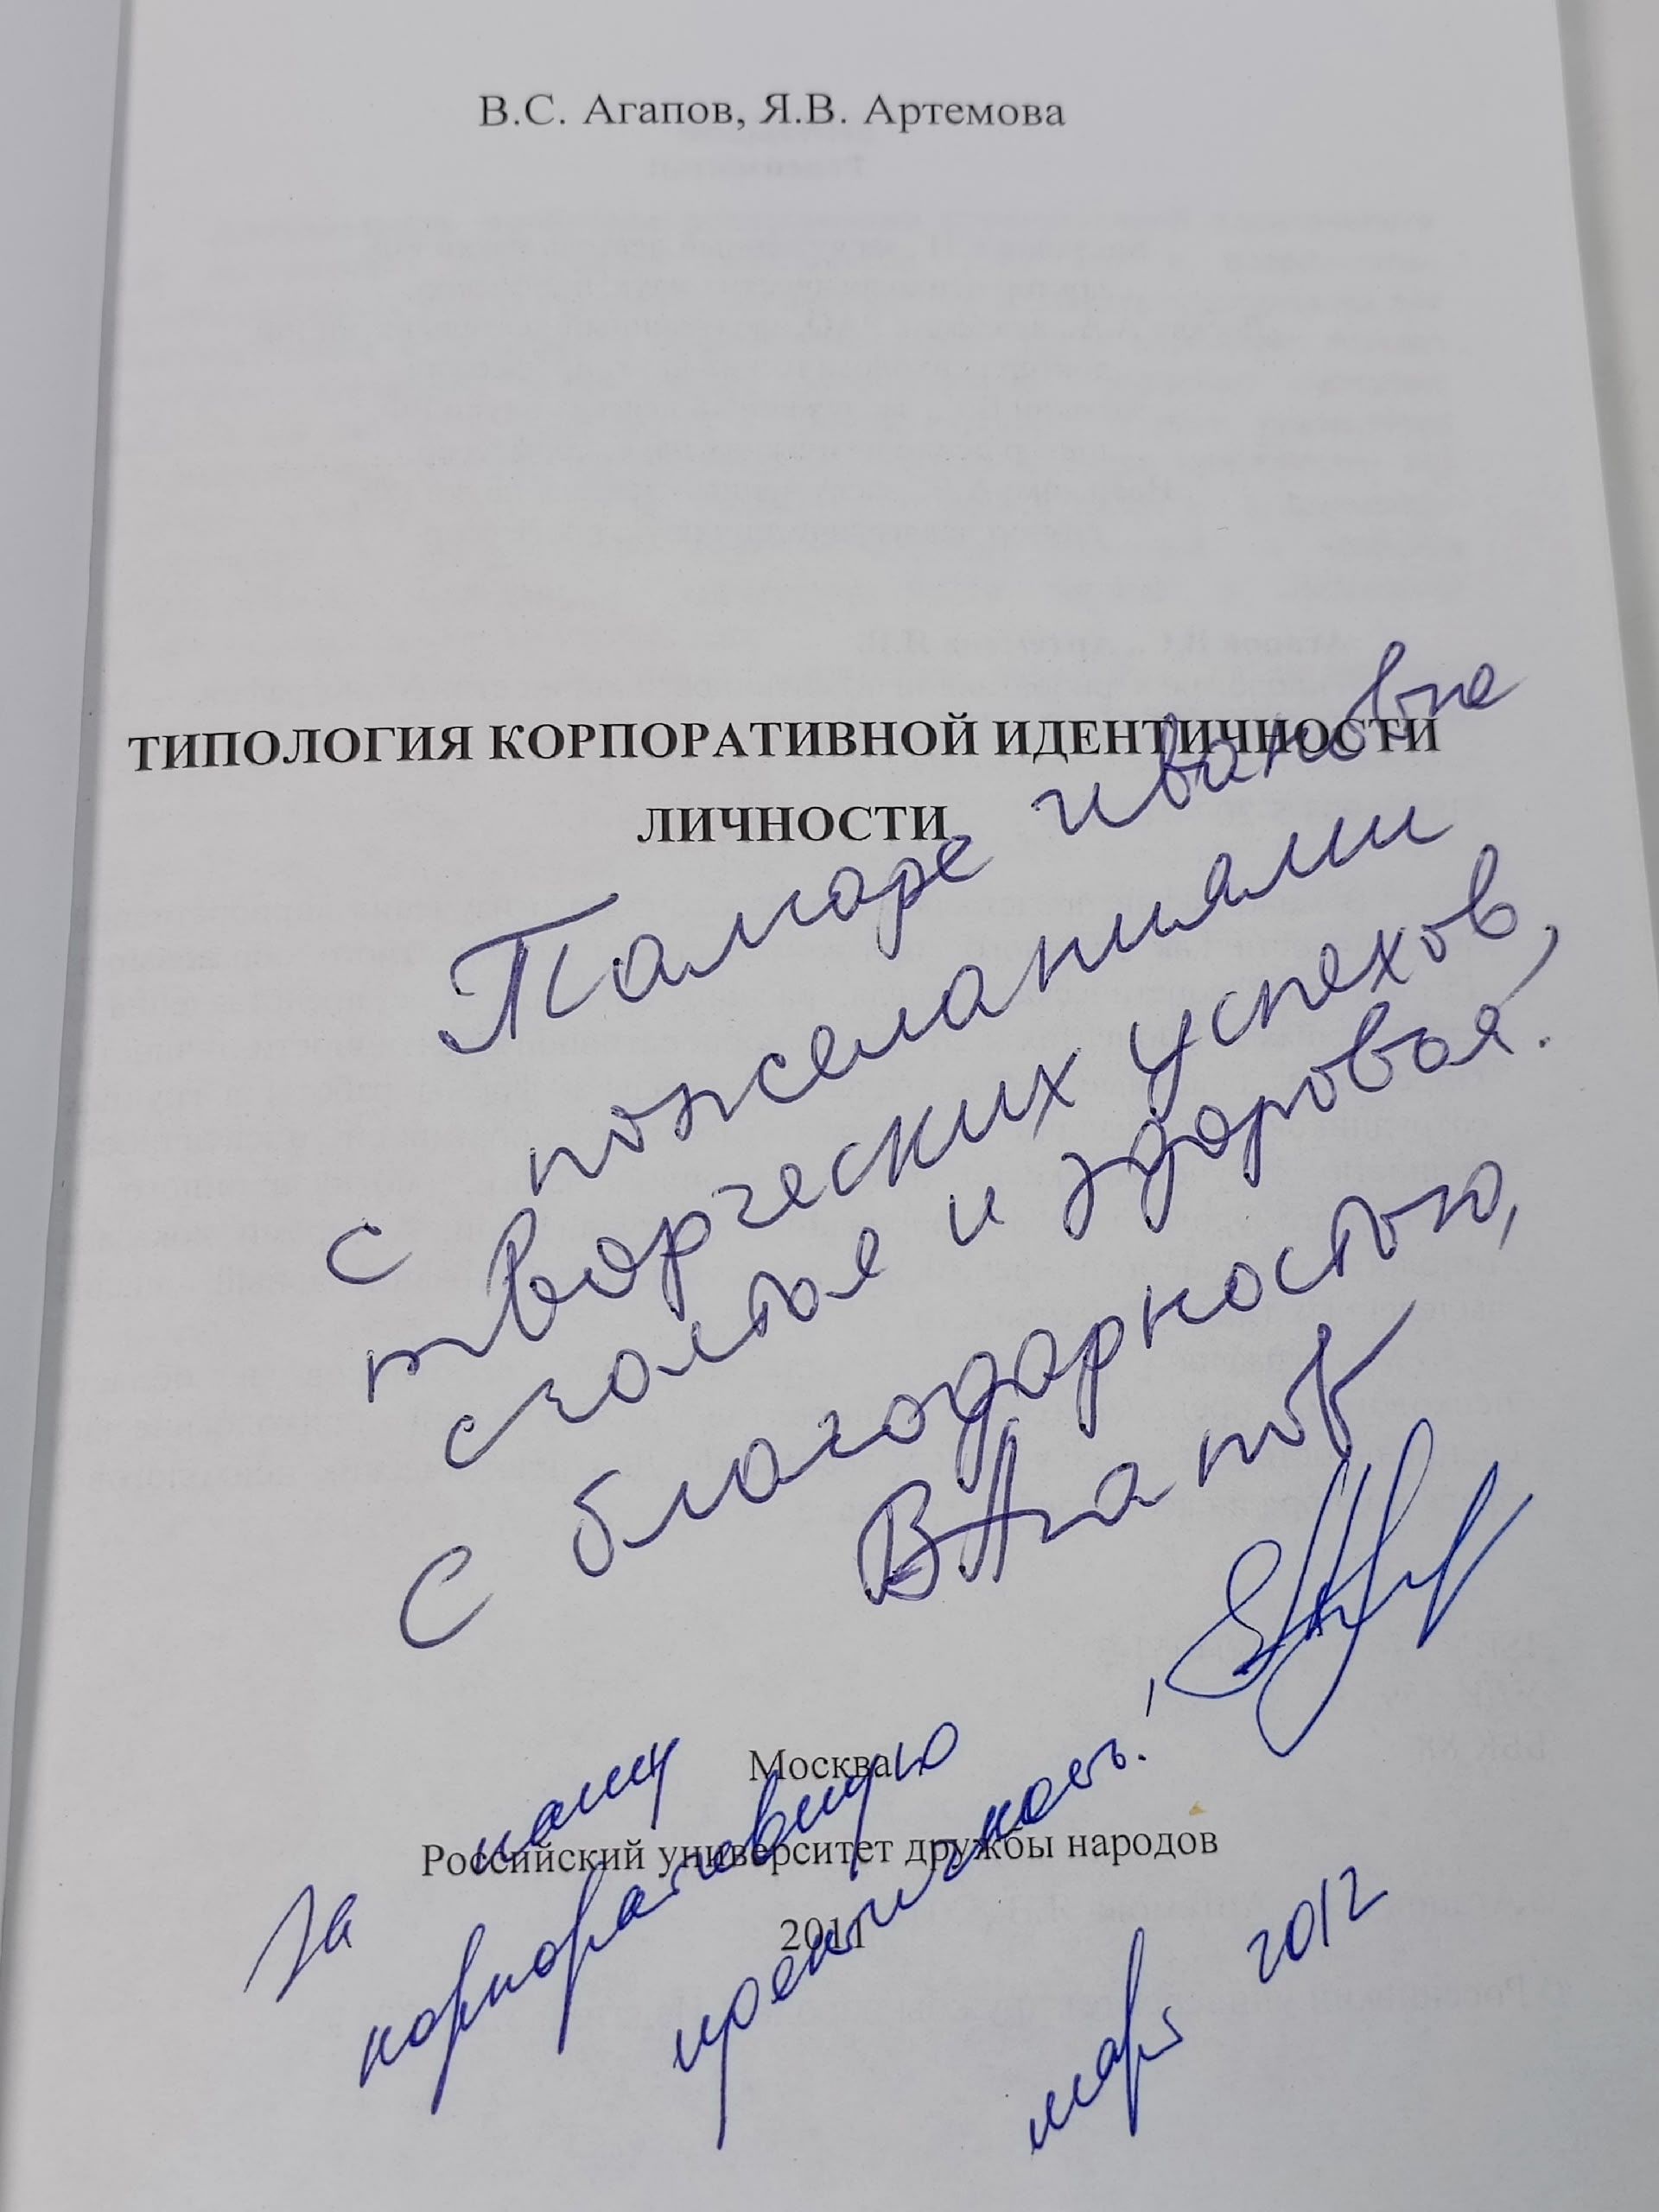 В.С. Агапов, Я.В. Артемова
ТИПОЛОГИЯ КОРПОРАТИВНОЙ ИДЕНТИЧНОСТИ
ЛИЧНОСТИ
Тамаре Ивановне
с пожеланиями
творческих успехов,
счастья и здоровья.
С благодарностью,
ВАгапов
За нашу
корпоративную
идентичность!
март 2012
Москва
Российский университет дружбы народов
2011